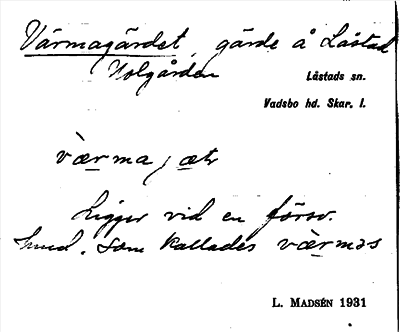 Värmagärdet, gärde å Låstad
Holgården
Låstads sn.
Vadsbo hd. Skar. l.
væ̀rma, æt
Ligger vid en försv.
som kallades væ̀rməs
L. MADSÉN 1931